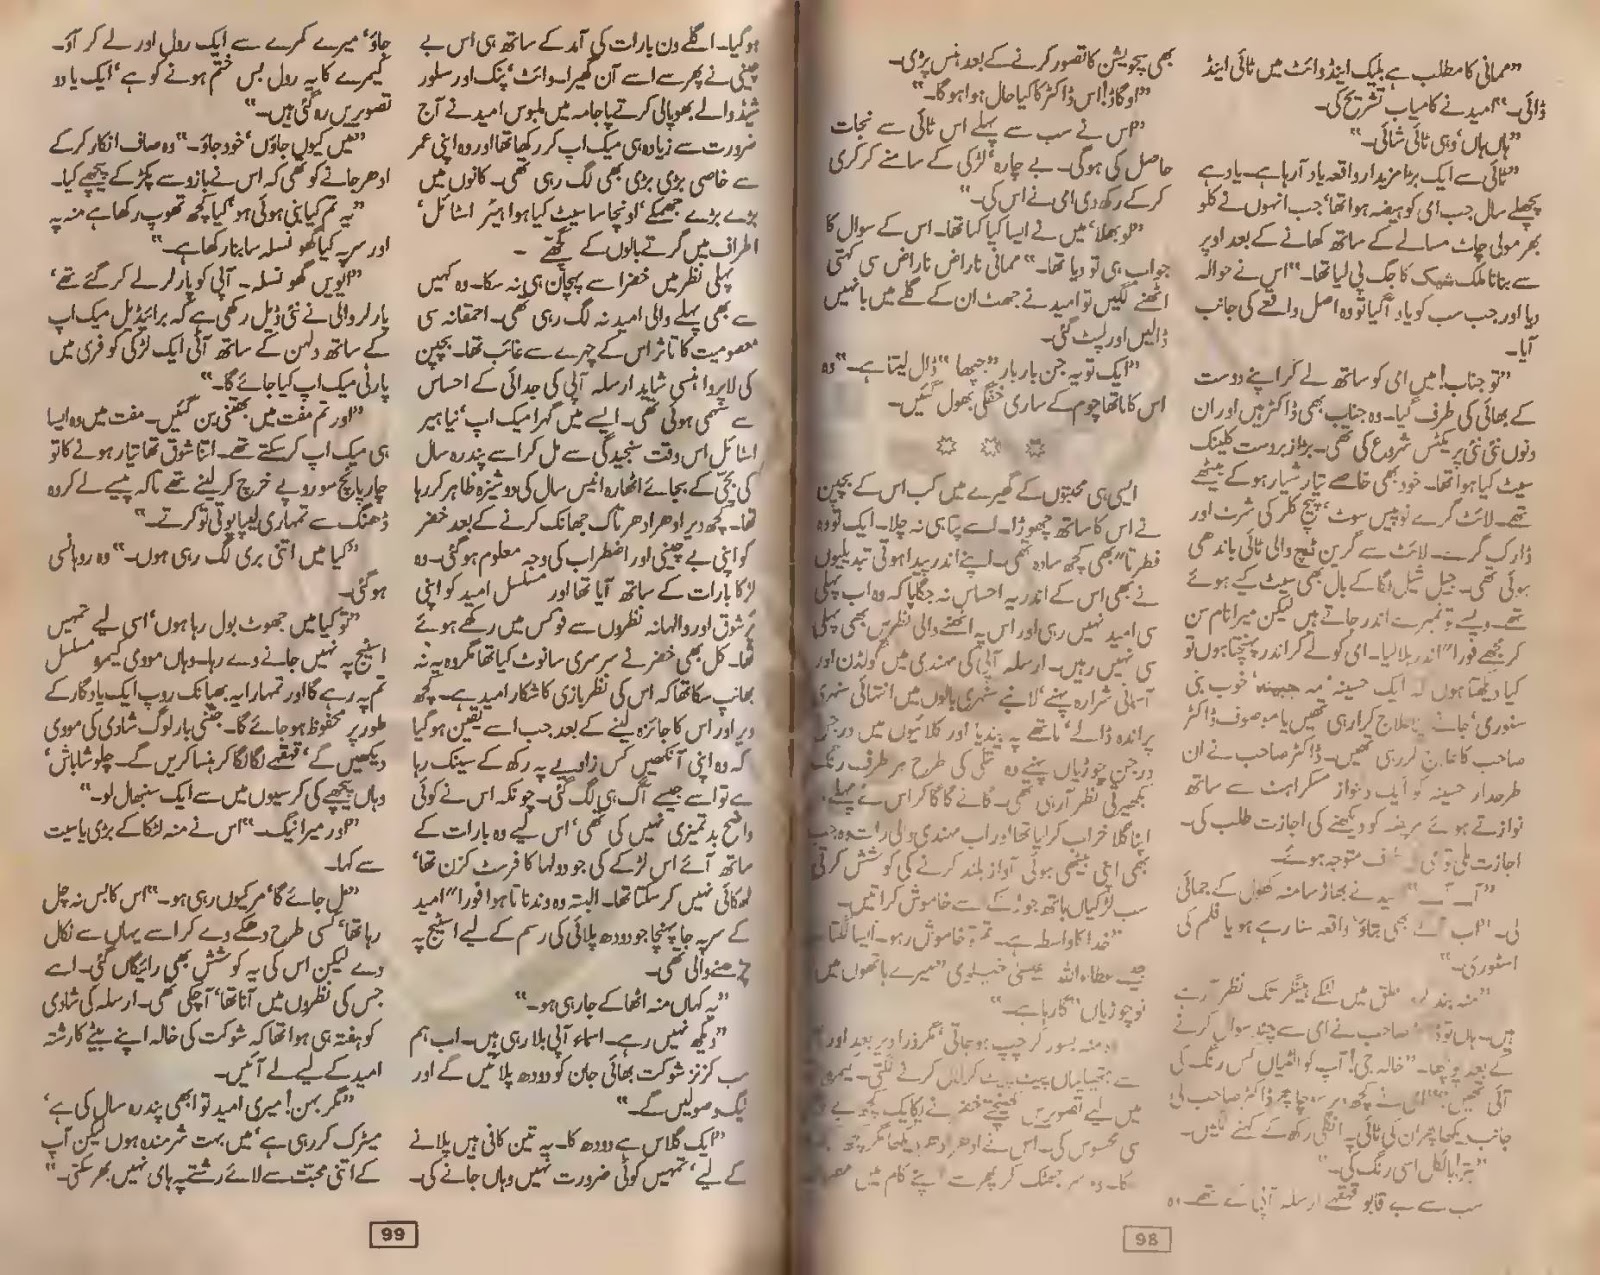 ”ممانی کا مطلب ہے بلیک اینڈ وائٹ میں ٹائی اینڈ
ڈائی۔“ امید نے کامیاب تشریح کی۔
”ہاں ہاں‘ وہی ٹائی شائی۔“
”ٹائی سے ایک بڑا مزیدار واقعہ یاد آ رہا ہے۔ یاد ہے
پچھلے سال جب امی کو ہیضہ ہوا تھا‘ جب انہوں نے کلو
بھر مولی چاٹ مسالے کے ساتھ کھانے کے بعد اوپر
سے بنانا ملک شیک کا جگ پی لیا تھا۔“ اس نے حوالہ
دیا اور جب سب کو یاد آ گیا تو وہ اصل واقعے کی جانب
آیا۔
”تو جناب! میں امی کو ساتھ لے کر اپنے دوست
کے بھائی کی طرف گیا۔ وہ جناب بھی ڈاکٹر ہیں اور ان
دنوں نئی نئی پریکٹس شروع کی تھی۔ بڑا زبردست کلینک
سیٹ کیا ہوا تھا۔ خود بھی خاصے تیار شیار ہو کے بیٹھے
تھے۔ لائٹ گرے ٹو پیس سوٹ‘ پیچ کلر کی شرٹ اور
ڈارک گرے۔ لائٹ سے گرین ٹچ والی ٹائی باندھی
ہوئی تھی۔ جیل شیل لگا کے بال بھی سیٹ کیے ہوئے
تھے۔ ویسے تو نمبر سے اندر جاتے ہیں لیکن میرا نام سن
کر مجھے فورا“ اندر بلا لیا۔ امی کو لے کر اندر پہنچتا ہوں تو
کیا دیکھتا ہوں کہ ایک حسینہ‘ مہ جبینہ‘ خوب بنی
سنوری‘ جانے علاج کرا رہی تھیں یا موصوف ڈاکٹر
صاحب کا علاج کر رہی تھیں۔ ڈاکٹر صاحب نے ان
طرحدار حسینہ کو ایک دلنواز مسکراہٹ سے ساتھ
نوازتے ہوئے مریضہ کو دیکھنے کی اجازت طلب کی۔
اجازت ملی تو امی کی طرف متوجہ ہوئے۔
”آ۔ آ۔“ امید نے بھاڑ سا منہ کھول کے جمائی
لی۔ ”اب آگے بھی بتاؤ‘ واقعہ سنا رہے ہو یا فلم کی
اسٹوری۔“
”منہ بند کرو حلق میں لٹکے ہینگر تک نظر آ رہے
ہیں۔ ہاں تو ڈاکٹر صاحب نے امی سے چند سوال کرنے
کے بعد پوچھا۔ ”خالہ جی! آپ کو الٹیاں کس رنگ کی
آئی تھیں؟“ امی نے کچھ دیر سوچا پھر ڈاکٹر صاحب کی
جانب دیکھا پھر ان کی ٹائی پہ انگلی رکھ کے کہنے لگیں۔
”پتر! بالکل اسی رنگ کی۔“
سب سے بے قابو قہقہے ارسلہ آپی کے تھے۔ وہ
بھی سچویشن کا تصور کرنے کے بعد ہنس پڑی۔
”او گاڈ! اس ڈاکٹر کا کیا حال ہوا ہوگا۔“
”اس نے سب سے پہلے اس ٹائی سے نجات
حاصل کی ہوگی۔ بے چارہ‘ لڑکی کے سامنے کرکری
کر کے رکھ دی امی نے اس کی۔“
”لو بھلا‘ میں نے ایسا کیا کہا تھا۔ اس کے سوال کا
جواب ہی تو دیا تھا۔“ ممانی ناراض ناراض سی کہتی
اٹھنے لگیں تو امید نے جھٹ ان کے گلے میں بانہیں
ڈالیں اور لپٹ گئی۔
”ایک تو یہ جن بار بار ”جپھا“ ڈال لیتا ہے۔“ وہ
اس کا ماتھا چوم کے ساری خفگی بھول گئیں۔
✲ ✲ ✲
ایسی ہی محبتوں کے گھیرے میں کب اس کے بچپن
نے اس کا ساتھ چھوڑا۔ اسے پتا ہی نہ چلا۔ ایک تو وہ
فطرتا“ بھی کچھ سادہ تھی۔ اپنے اندر پیدا ہوتی تبدیلیوں
نے بھی اس کے اندر یہ احساس نہ جگایا کہ وہ اب پہلی
سی امید نہیں رہی اور اس پہ اٹھنے والی نظریں بھی پہلی
سی نہیں رہیں۔ ارسلہ آپی کی مہندی میں گولڈن اور
آسمانی شرارہ پہنے‘ لانبے سنہری بالوں میں انتہائی سنہری
پراندہ ڈالے‘ ماتھے پہ بندیا اور کلائیوں میں درجن
درجن چوڑیاں پہنے وہ تتلی کی طرح ہر طرف رنگ
بکھیرتی نظر آ رہی تھی۔ گانے گا گا کر اس نے پہلے
اپنا گلا خراب کر لیا تھا اور اب مہندی والی رات وہ جب
بھی اپنی بیٹھی ہوئی آواز بلند کرنے کی کوشش کرتی
سب لڑکیاں ہاتھ جوڑ کے اسے خاموش کراتیں۔
”خدا کا واسطہ ہے۔ تم تو خاموش رہو۔ ایسا لگتا
جیسے عطاء اللہ عیسیٰ خیلوی ”میرے ہاتھوں میں
نو چوڑیاں“ گا رہا ہے۔“
وہ منہ بسور کر چپ ہو جاتی‘ مگر ذرا دیر بعد اور
سے ہتھیلیاں پیٹ پیٹ کر تالی کرنے لگتی۔
میں لیے تصویریں کھینچتے خضر نے یکایک کچھ بے
سی محسوس کی۔ اس نے ادھر ادھر دیکھا مگر کچھ
سکا۔ وہ سر جھٹک کر پھر سے اپنے کام میں مصروف
ہو گیا۔ اگلے دن بارات کی آمد کے ساتھ ہی اس بے
چینی نے پھر سے اسے آن گھیرا۔ وائٹ‘ پنک اور سلور
شیڈ والے بھوپالی کرتے پاجامہ میں ملبوس امید نے آج
ضرورت سے زیادہ ہی میک اپ کر رکھا تھا اور وہ اپنی عمر
سے خاصی بڑی بڑی بھی لگ رہی تھی۔ کانوں میں
بڑے بڑے جھمکے‘ اونچا سا سیٹ کیا ہوا ہیئر اسٹائل‘
اطراف میں گرتے بالوں کے گچھے ۔
پہلی نظر میں خضر اسے پہچان ہی نہ سکا۔ وہ کہیں
سے بھی پہلے والی امید نہ لگ رہی تھی۔ احمقانہ سی
معصومیت کا تاثر اس کے چہرے سے غائب تھا۔ بچپن
کی لاپروا ہنسی شاید ارسلہ آپی کی جدائی کے احساس
سے سہمی ہوئی تھی۔ ایسے میں گہرا میک اپ‘ نیا ہیر
اسٹائل اس وقت سنجیدگی سے مل کر اسے پندرہ سال
کی بچی کے بجائے اٹھارہ انیس سال کی دوشیزہ ظاہر کر رہا
تھا۔ کچھ دیر ادھر ادھر تاک جھانک کرنے کے بعد خضر
کو اپنی بے چینی اور اضطراب کی وجہ معلوم ہو گئی۔ وہ
لڑکا بارات کے ساتھ آیا تھا اور مسلسل امید کو اپنی
پرشوق اور والہانہ نظروں سے فوکس میں رکھے ہوئے
تھا۔ کل بھی خضر نے سرسری سا نوٹ کیا تھا مگر وہ یہ نہ
بھانپ سکا تھا کہ اس کی نظر بازی کا شکار امید ہے۔ کچھ
دیر اور اس کا جائزہ لینے کے بعد جب اسے یقین ہو گیا
کہ وہ اپنی آنکھیں کس زاویے پہ رکھ کے سینک رہا
ہے تو اسے جیسے آگ ہی لگ گئی۔ چونکہ اس نے کوئی
واضح بدتمیزی نہیں کی تھی‘ اس لیے وہ بارات کے
ساتھ آئے اس لڑکے کی جو دولہا کا فرسٹ کزن تھا‘
ٹھکائی نہیں کر سکتا تھا۔ البتہ وہ دندناتا ہوا فورا“ امید
کے سر پہ جا پہنچا جو دودھ پلائی کی رسم کے لیے اسٹیج پہ
چڑھنے والی تھی۔
”یہ کہاں منہ اٹھا کے جا رہی ہو۔“
”دیکھ نہیں رہے۔ اسماء آپی بلا رہی ہیں۔ اب ہم
سب کزنز شوکت بھائی جان کو دودھ پلائیں گے اور
نیگ وصولیں گے۔“
”ایک گلاس ہے دودھ کا۔ یہ تین کافی ہیں پلانے
کے لیے‘ تمہیں کوئی ضرورت نہیں وہاں جانے کی۔
جاؤ‘ میرے کمرے سے ایک رول اور لے کر آؤ۔
کیمرے کا یہ رول بس ختم ہونے کو ہے‘ ایک یا دو
تصویریں رہ گئی ہیں۔“
”میں کیوں جاؤں‘ خود جاؤ۔“ وہ صاف انکار کر کے
ادھر جانے کو تھی کہ اس نے بازو سے پکڑ کے پیچھے کیا۔
”یہ تم کیا بنی ہوئی ہو‘ کیا کچھ تھوپ رکھا ہے منہ پہ
اور سر پہ کیا گھونسلہ سا بنا رکھا ہے۔“
”ایویں گھونسلہ۔ آپی کو پارلر لے کر گئے تھے‘
پارلر والی نے نئی ڈیل رکھی ہے کہ برائیڈیل میک اپ
کے ساتھ دلہن کے ساتھ آئی ایک لڑکی کو فری میں
پارٹی میک اپ کیا جائے گا۔“
”اور تم مفت میں بھتنی بن گئیں۔ مفت میں وہ ایسا
ہی میک اپ کر سکتے تھے۔ اتنا شوق تھا تیار ہونے کا تو
چار پانچ سو روپے خرچ کر لینے تھے تاکہ پیسے لے کر وہ
ڈھنگ سے تمہاری لیپا پوتی تو کرتے۔“
”کیا میں اتنی بری لگ رہی ہوں۔“ وہ روہانسی
ہو گئی۔
”تو کیا میں جھوٹ بول رہا ہوں‘ اسی لیے تمہیں
اسٹیج پہ نہیں جانے دے رہا۔ وہاں مووی کیمرہ مسلسل
تم پہ رہے گا اور تمہارا یہ بھیانک روپ ایک یادگار کے
طور پر محفوظ ہو جائے گا۔ جتنی بار لوگ شادی کی مووی
دیکھیں گے‘ قہقہے لگا لگا کر ہنسا کریں گے۔ چلو شاباش‘
وہاں پیچھے کی کرسیوں میں سے ایک سنبھال لو۔“
”اور میرا نیگ۔“ اس نے منہ لٹکا کے بڑی یاسیت
سے کہا۔
”مل جائے گا‘ مر کیوں رہی ہو۔“ اس کا بس نہ چل
رہا تھا‘ کسی طرح دھکے دے کر اسے یہاں سے نکال
دے لیکن اس کی یہ کوشش بھی رائیگاں گئی۔ اسے
جس کی نظروں میں آنا تھا‘ آ چکی تھی۔ ارسلہ کی شادی
کو ہفتہ ہی ہوا تھا کہ شوکت کی خالہ اپنے بیٹے کا رشتہ
امید کے لیے لے آئیں۔
”مگر بہن! میری امید تو ابھی پندرہ سال کی ہے‘
میٹرک کر رہی ہے‘ میں بہت شرمندہ ہوں لیکن آپ
کے اتنی محبت سے لائے رشتے پہ ہامی نہیں بھر سکتی۔“
98
99